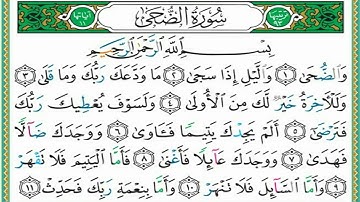 سُورَةُ الضُّحَىٰ
بِسْمِ اللَّهِ الرَّحْمَٰنِ الرَّحِيمِ
وَالضُّحَىٰ ١ وَاللَّيْلِ إِذَا سَجَىٰ ٢ مَا وَدَّعَكَ رَبُّكَ وَمَا قَلَىٰ ٣
وَلَلْآخِرَةُ خَيْرٌ لَّكَ مِنَ الْأُولَىٰ ٤ وَلَسَوْفَ يُعْطِيكَ رَبُّكَ
فَتَرْضَىٰ ٥ أَلَمْ يَجِدْكَ يَتِيمًا فَآوَىٰ ٦ وَوَجَدَكَ ضَالًّا
فَهَدَىٰ ٧ وَوَجَدَكَ عَائِلًا فَأَغْنَىٰ ٨ فَأَمَّا الْيَتِيمَ فَلَا تَقْهَرْ
٩ وَأَمَّا السَّائِلَ فَلَا تَنْهَرْ ١٠ وَأَمَّا بِنِعْمَةِ رَبِّكَ فَحَدِّثْ ١١